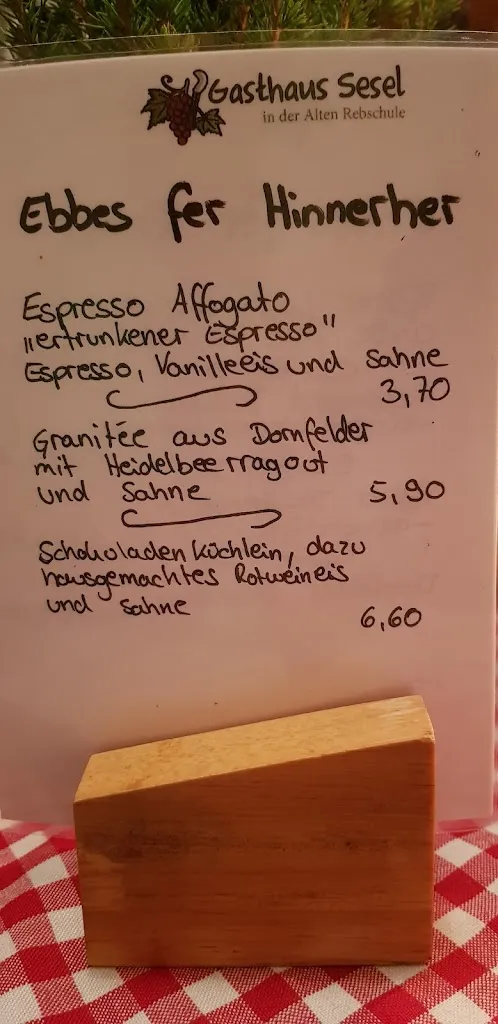 Gasthaus Sesel
in der Alten Rebschule
Ebbes fer Hinnerher
Espresso Affogato
"ertrunkener Espresso"
Espresso, Vanilleeis und Sahne
3,70
Granitée aus Dornfelder
mit Heidelbeerragout
und Sahne 5,90
Schokoladenküchlein, dazu
hausgemachtes Rotweineis
und Sahne
6,60